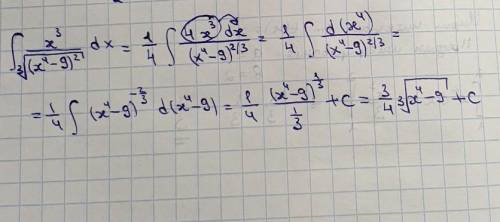 ∫ x³/∛((x⁴-9)²) dx = 1/4 ∫ 4x³ dx/(x⁴-9)^(2/3) = 1/4 ∫ d(x⁴)/(x⁴-9)^(2/3) =
= 1/4 ∫ (x⁴-9)^(-2/3) d(x⁴-9) = 1/4 (x⁴-9)^(1/3)/(1/3) + C = 3/4 ∛(x⁴-9) + C